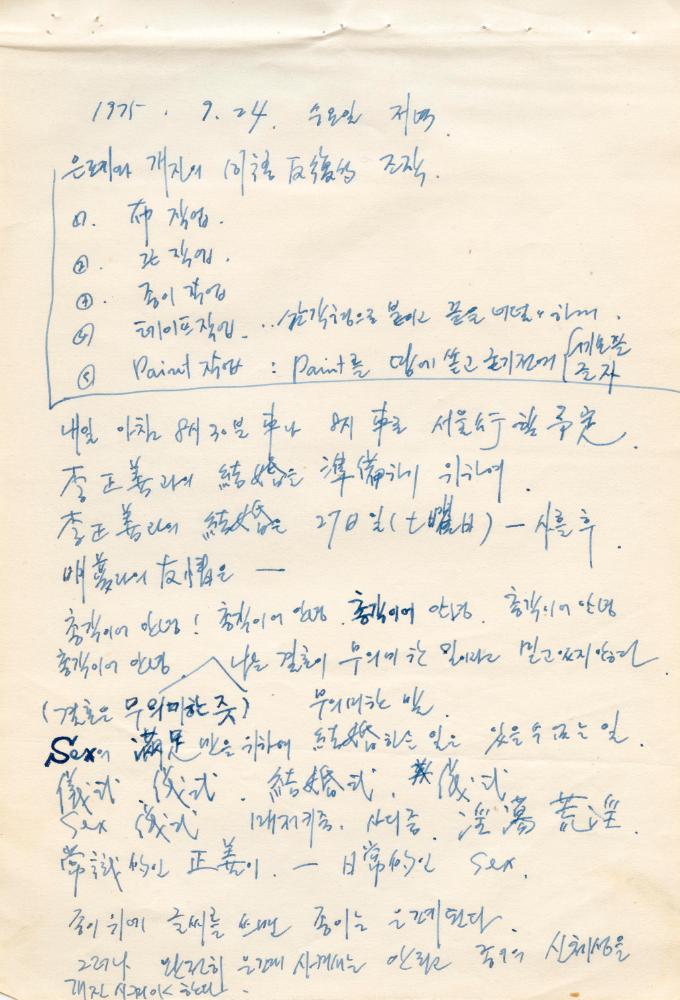 1975. 9. 24. 수요일 저녁.
은폐와 개진의 同語反復的 조직.
①. 布 작업.
②. 못 작업.
④. 종이 작업
④ 테이프작업. ··삼각형으로 붙이고 끝을
⑤ Paint 작업 : Paint를 땅에 쏟고 굳기전에
글자
내일 아침 8시 30분 車나 8시 車로 서울行 할 予定.
李正善과의 結婚을 準備하기 위하여.
李正善과의 結婚은 27日 일(土曜日) — 사흘 후.
友情은 —
총각이여 안녕! 총각이여 안녕. 총각이여 안녕. 총각이여 안녕
총각이여 안녕 나는 결혼이 무의미한 일이라고 믿고 있지 않다.
(결혼은 무의미한 즛) 무의미한 일.
Sex의 満足 만을 위하여 結婚하는 일은 있을 수 없는 일.
儀式 儀式. 結婚式. 儀式.
Sex 儀式 매저키즘. 사디즘. 淫蕩 荒淫.
常識的인 正善이. — 日常的인 Sex.
종이 위에 글씨를 쓰면 종이는 은폐된다.
그러나 완전히 은폐 시켜서는 안되고 종이의 신체성을
개진 시켜야 한다.